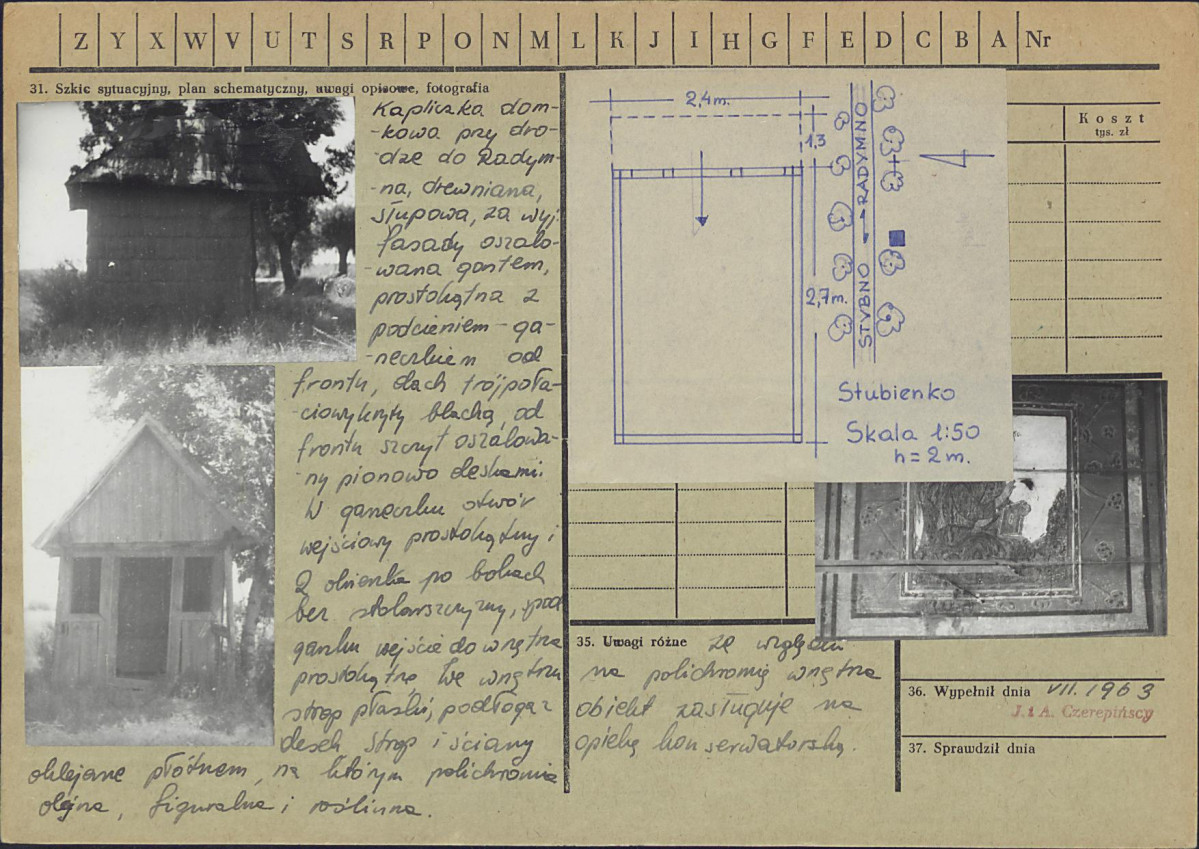 Z Y X W V U T S R P O N M L K J I H G F E D C B A Nr
31. Szkic sytuacyjny, plan schematyczny, uwagi opisowe, fotografia
Kapliczka dom-
-kowa przy dro-
-dze do Radym-
-na, drewniana,
słupowa, za wyj.
fasady oszalo-
-wana gontem,
prostokątna z
podcieniem - ga-
-neczkiem od
frontu, dach trójpoła-
-ciowy kryty blachą, od
frontu szczyt oszalowa-
-ny pionowo deskami.
W ganeczku otwór
wejściowy prostokątny i
2 okienka po bokach
bez stolarszczyzny, spod
ganku wejście do wnętrza
prostokątne. We wnętrzu
strop płaski, podłoga z
desek. Strop i ściany
oklejane płótnem, na którym polichromia
olejna, figuralna i roślinna.
2,4 m.
1,3
2,7 m.
STUBNO RADYMNO
Stubienko
Skala 1:50
h = 2 m.
Koszt
tys. zł
35. Uwagi różne ze względu
na polichromię wnętrza
obiekt zasługuje na
opiekę konserwatorską.
36. Wypełnił dnia VII. 1963
J. i A. Czerepińscy
37. Sprawdził dnia